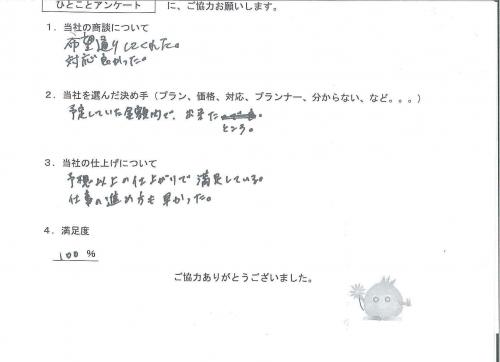 ひとことアンケート に、ご協力お願いします。
１．当社の商談について
希望通りしてくれた。
対応良かった。
２．当社を選んだ決め手（プラン、価格、対応、プランナー、分からない、など。。。）
予定していた金額内で、出来た
ところ。
３．当社の仕上げについて
予想以上の仕上がりで満足している。
仕事の進め方も早かった。
４．満足度
100 %
ご協力ありがとうございました。